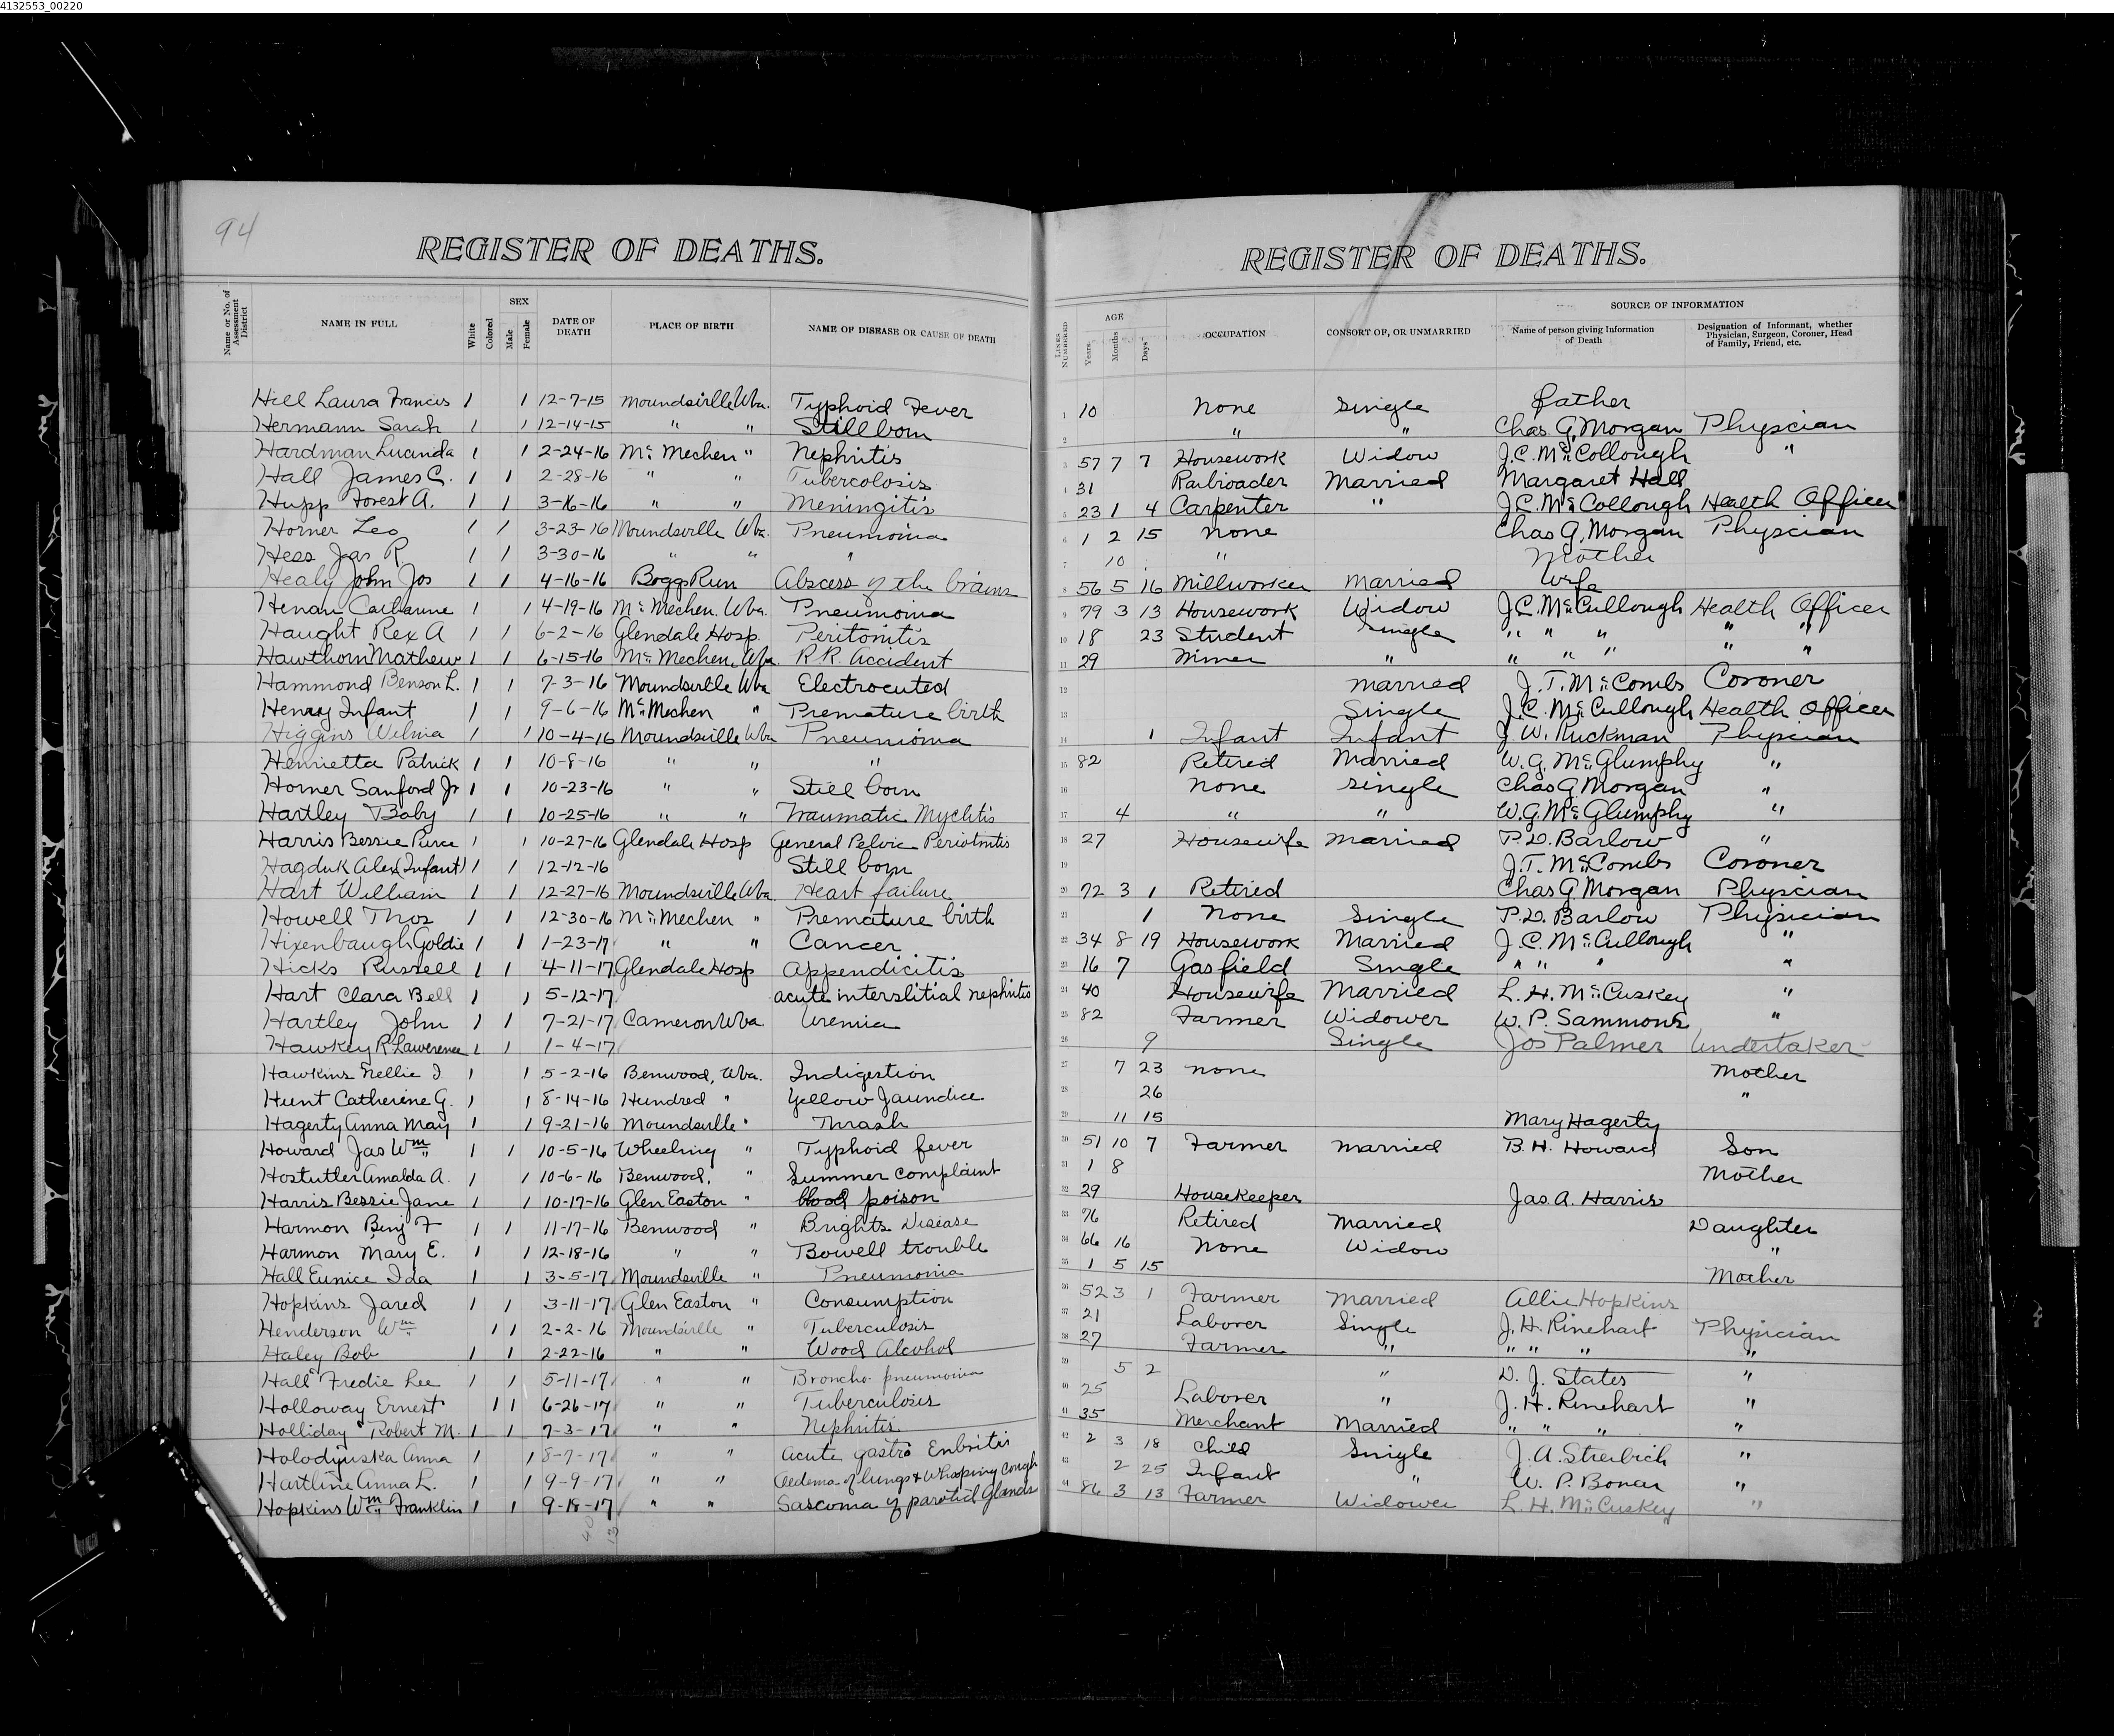 4132553_00220
94
REGISTER OF DEATHS.
REGISTER OF DEATHS.
Name or No. of Assessment District
NAME IN FULL
White
Colored
SEX
Male
Female
DATE OF DEATH
PLACE OF BIRTH
NAME OF DISEASE OR CAUSE OF DEATH
LINES NUMBERED
AGE
Years
Months
Days
OCCUPATION
CONSORT OF, OR UNMARRIED
SOURCE OF INFORMATION
Name of person giving Information of Death
Designation of Informant, whether Physician, Surgeon, Coroner, Head of Family, Friend, etc.
Hill Laura Francis 1 1 12-7-15 Moundsville Wva. Typhoid Fever 1 10 None Single father
Hermann Sarah 1 1 12-14-15 " " Still born 2 " " Chas G. Morgan Physcian
Hardman Lucinda 1 1 2-24-16 Mc Mechen " Nephritis 3 57 7 7 Housework Widow J.C. McCollough "
Hall James C. 1 1 2-28-16 " " Tubercolosis 4 31 Railroader Married Margaret Hall
Hupp Forest A. 1 1 3-16-16 " " Meningitis 5 23 1 4 Carpenter " J.C. McCollough Health Officer
Horner Leo 1 1 3-23-16 Moundsville Wva. Pneumonia 6 1 2 15 None Chas G. Morgan Physcian
Hess Jas R 1 1 3-30-16 " " " 7 10 " Mother
Healy John Jos 1 1 4-16-16 Boggs Run Abscess of the brains 8 56 5 16 Millworker Married Wife
Henan Catharine 1 1 4-19-16 Mc Mechen. Wva. Pneumonia 9 79 3 13 Housework Widow J.C. McCullough Health Officer
Haught Rex A 1 1 6-2-16 Glendale Hosp. Peritonitis 10 18 23 Student Single " " " " "
Hawthorn Mathew 1 1 6-15-16 Mc Mechen, Wva. R.R. Accident 11 29 Miner " " " " " "
Hammond Benson L. 1 1 7-3-16 Moundsville Wva Electrocuted 12 Married J.T. McCombs Coroner
Henry Infant 1 1 9-6-16 McMechen " Premature birth 13 Single J.C. McCullough Health Officer
Higgins Wilma 1 1 10-4-16 Moundsville Wva Pneumonia 14 1 Infant Infant J.W. Ruckman Physcian
Henrietta Patrick 1 1 10-8-16 " " " 15 82 Retired Married W.G. McGlumphy "
Horner Sanford Jr 1 1 10-23-16 " " Still born 16 None Single Chas G. Morgan "
Hartley Baby 1 1 10-25-16 " " Traumatic Myelitis 17 4 " " W.G. McGlumphy "
Harris Bessie Pierce 1 1 10-27-16 Glendale Hosp General Pelvic Periotnitis 18 27 Housewife Married P.D. Barlow "
Hagduk Alex (Infant) 1 1 12-12-16 Still born 19 J.T. McCombs Coroner
Hart William 1 1 12-27-16 Moundsville Wva. Heart failure 20 72 3 1 Retired Chas G Morgan Physcian
Howell Thos 1 1 12-30-16 Mc Mechen " Premature birth 21 1 None Single P.D. Barlow Physician
Hixenbaugh Goldie 1 1 1-23-17 " " Cancer 22 34 8 19 Housework Married J.C. McCullough "
Hicks Russell 1 1 4-11-17 Glendale Hosp Appendicitis 23 16 7 Gasfield Single " " " "
Hart Clara Bell 1 1 5-12-17 acute interslitial nephritis 24 40 Housewife Married L.H. McCuskey "
Hartley John 1 1 7-21-17 Cameron Wva Uremia 25 82 Farmer Widower W.P. Sammons "
Hawkey R Lawerence 1 1 1-4-17 26 9 Single Jos Palmer Undertaker
Hawkins Nellie I 1 1 5-2-16 Benwood, Wva. Indigestion 27 7 23 none Mother
Hunt Catherine G. 1 1 8-14-16 Hundred " Yellow Jaundice 28 26 "
Hagerty Anna May 1 1 9-21-16 Moundsville " Thrash 29 11 15 Mary Hagerty
Howard Jas Wm 1 1 10-5-16 Wheeling " Typhoid fever 30 51 10 7 Farmer married B.H. Howard Son
Hostutler Amalda A. 1 1 10-6-16 Benwood, " Summer Complaint 31 1 8 Mother
Harris Bessie Jane 1 1 10-17-16 Glen Easton " blood poison 32 29 Housekeeper Jas. A. Harris
Harmon Benj F 1 1 11-17-16 Benwood " Brights Disease 33 76 Retired Married Daughter
Harmon Mary E. 1 1 12-18-16 " " Bowell trouble 34 66 16 None Widow "
Hall Eunice Ida 1 1 3-5-17 Moundsville " Pneumonia 35 1 5 15 Mother
Hopkins Jared 1 1 3-11-17 Glen Easton " Consumption 36 52 3 1 Farmer Married Allie Hopkins
Henderson Wm 1 1 2-2-16 Moundsville " Tuberculosis 37 21 Laborer Single J.H. Rinehart Physician
Haley Bob 1 1 2-22-16 " " Wood Alcohol 38 27 Farmer " " " " "
Hall Fredie Lee 1 1 5-11-17 " " Broncho. pneumonia 39 5 2 " D.J. States "
Holloway Ernest 1 1 6-26-17 " " Tuberculosis 40 25 Laborer " J.H. Rinehart "
Holliday Robert M. 1 1 7-3-17 " " Nephritis 41 35 Merchant Married " " " "
Holodynska Anna 1 1 8-7-17 " " Acute gastro Entritis 42 2 3 18 Child Single J.A. Streibich "
Hartline Anna L. 1 1 9-9-17 " " Oedema of lungs & Whooping Cough 43 2 25 Infant " W.P. Bonar "
Hopkins Wm Franklin 1 1 9-18-17 " " Sascoma of parotid Glands 44 86 3 13 Farmer Widower L.H. McCuskey "
40
13